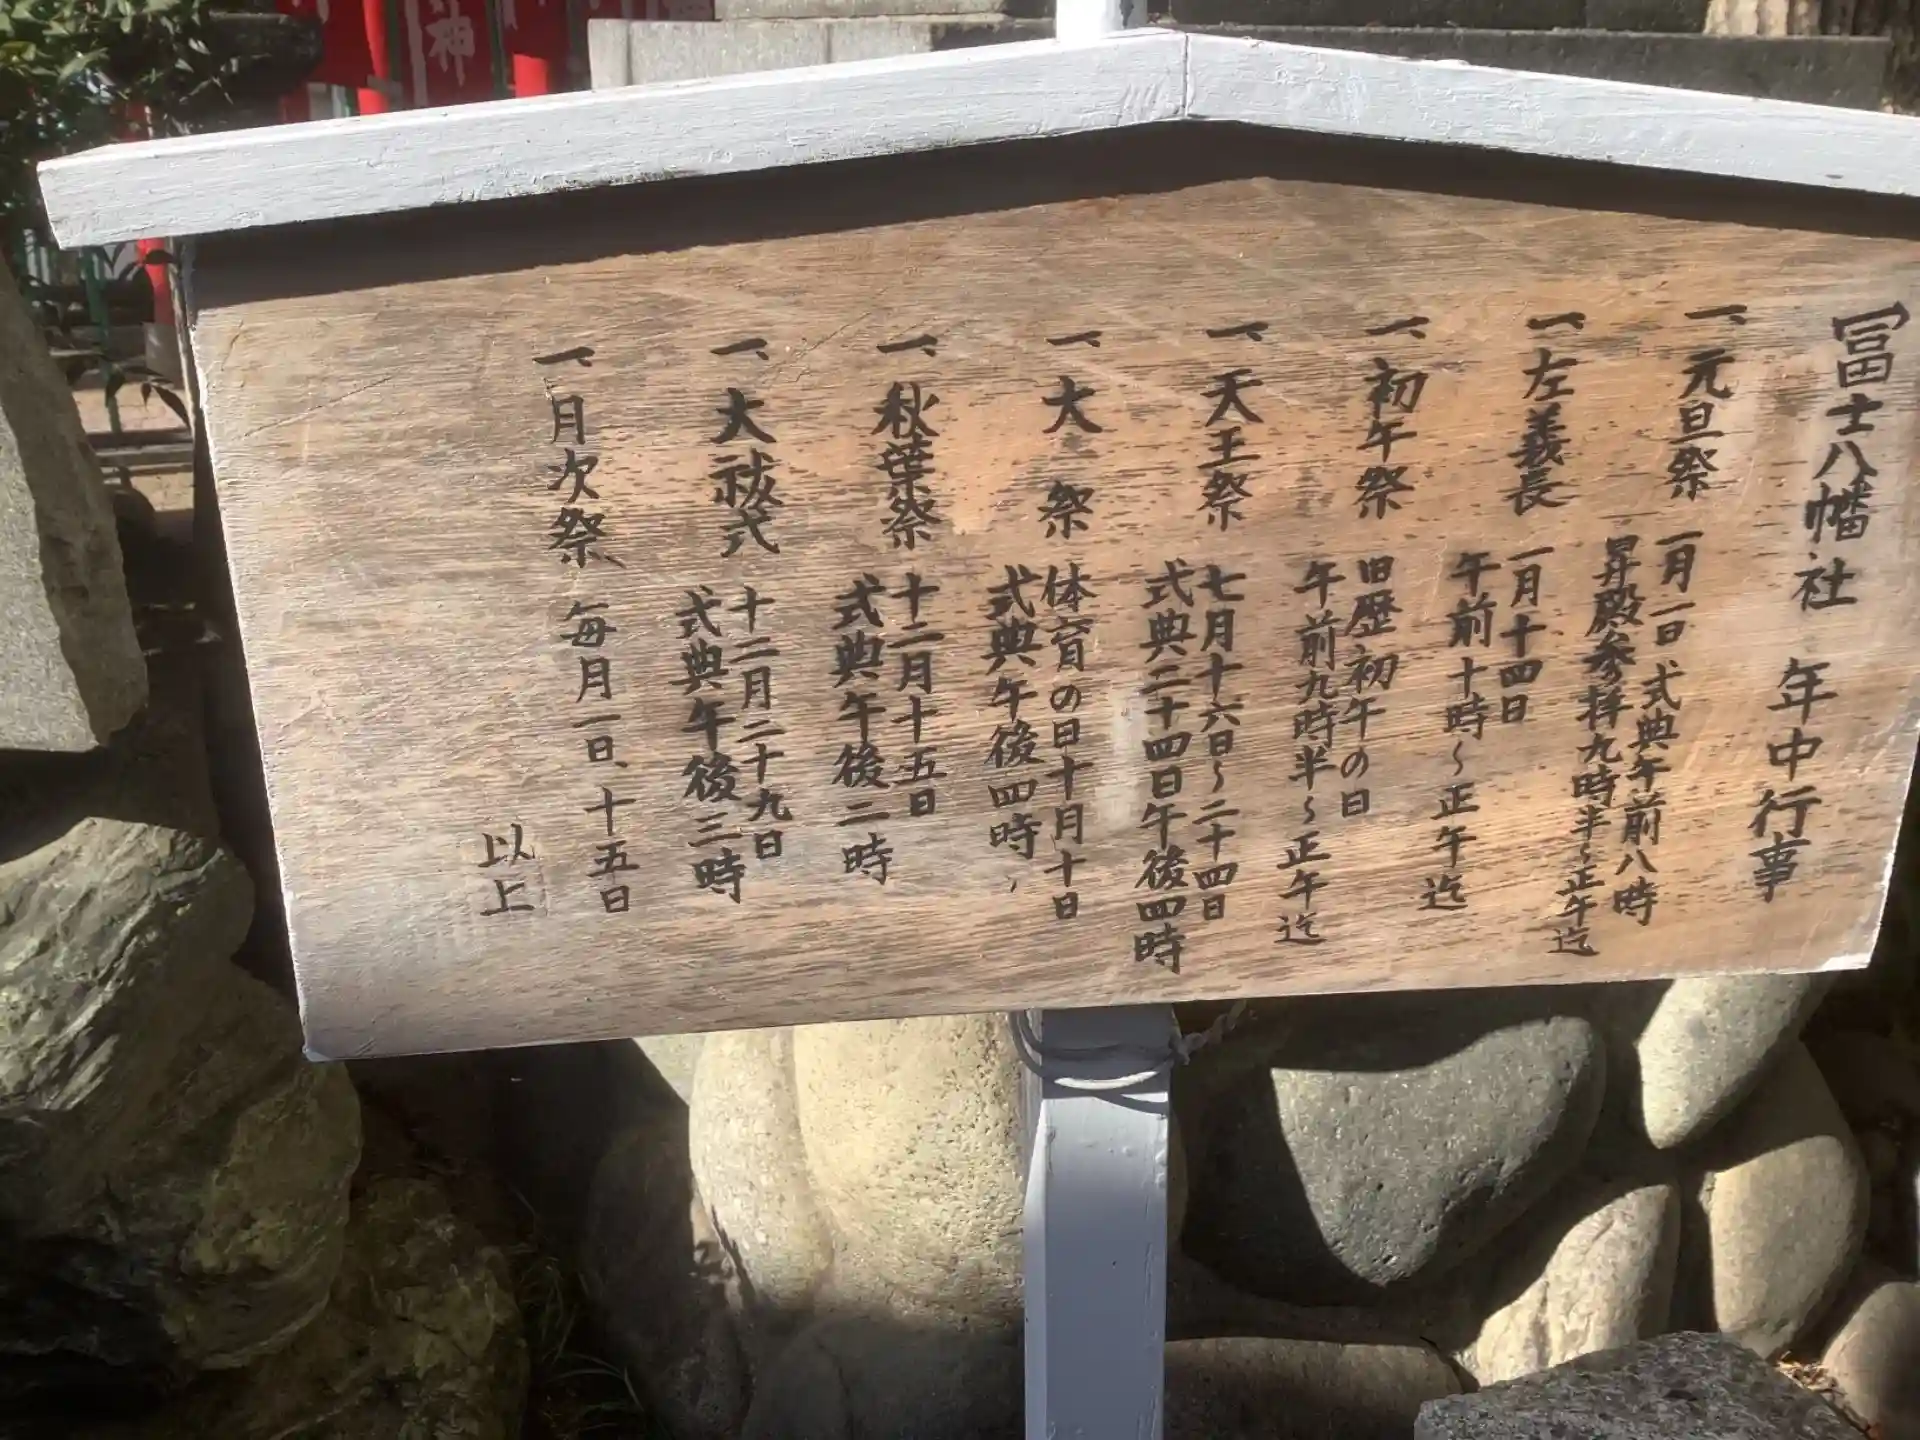 冨士八幡社　年中行事
一、元旦祭　一月一日式典午前八時
昇殿参拝九時半〜正午迄
一、左義長　一月十四日
午前十時〜正午迄
一、初午祭　旧歴初午の日
午前九時半〜正午迄
一、天王祭　七月十六日〜二十四日
式典二十四日午後四時
一、大　祭　体育の日十月十日
式典午後四時
一、秋葉祭　十二月十五日
式典午後二時
一、大祓式　十二月二十九日
式典午後三時
一、月次祭　毎月一日、十五日
以上
神